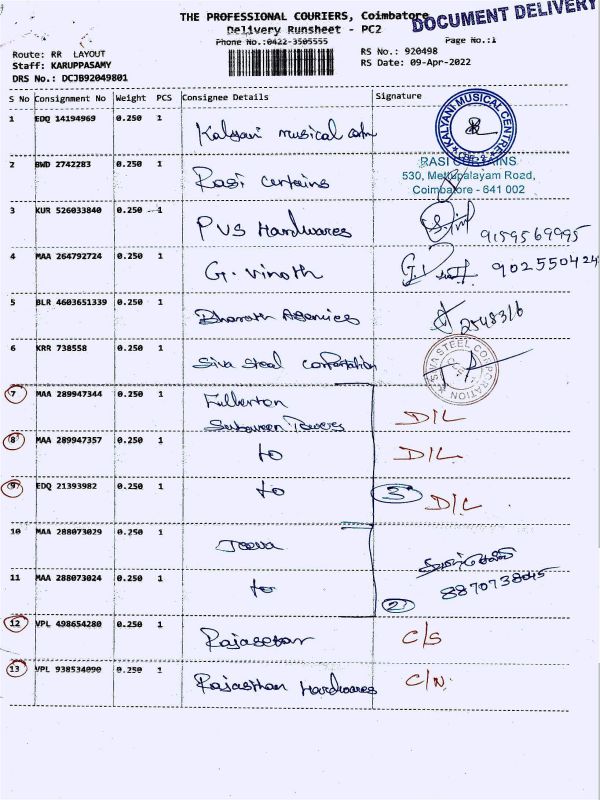 THE PROFESSIONAL COURIERS, Coimbatore
DOCUMENT DELIVERY
Delivery Runsheet - PC2
Phone No.:0422-3505555
Page No.:1
Route: RR LAYOUT
RS No.: 920498
Staff: KARUPPASAMY
RS Date: 09-Apr-2022
DRS No.: DCJB92049801
S No Consignment No Weight PCS Consignee Details Signature
1 EDQ 14194969 0.250 1 Kalyani musical
KALYANI MUSICAL CENTRE
2 BWD 2742283 0.250 1 Rasi curtains
RASI CURTAINS
530, Mettupalayam Road,
Coimbatore - 641 002
3 KUR 526033840 0.250 1 PVS Hardwares
9159569995
4 MAA 264792724 0.250 1 G. Vinoth
902550424
5 BLR 4603651339 0.250 1 Bharath Agencies
2548316
6 KRR 738558 0.250 1 Siva Steel
SIVA STEEL CORPORATION
7 MAA 289947344 0.250 1 Fullerton
Towers
D/L
8 MAA 289947357 0.250 1 to D/L
9 EDQ 21393982 0.250 1 to 3 D/L
10 MAA 288073029 0.250 1 Jeeva
11 MAA 288073024 0.250 1 to
2
12 VPL 498654280 0.250 1 C/S
13 VPL 938534090 0.250 1 Rajasthan Hardwares C/N.